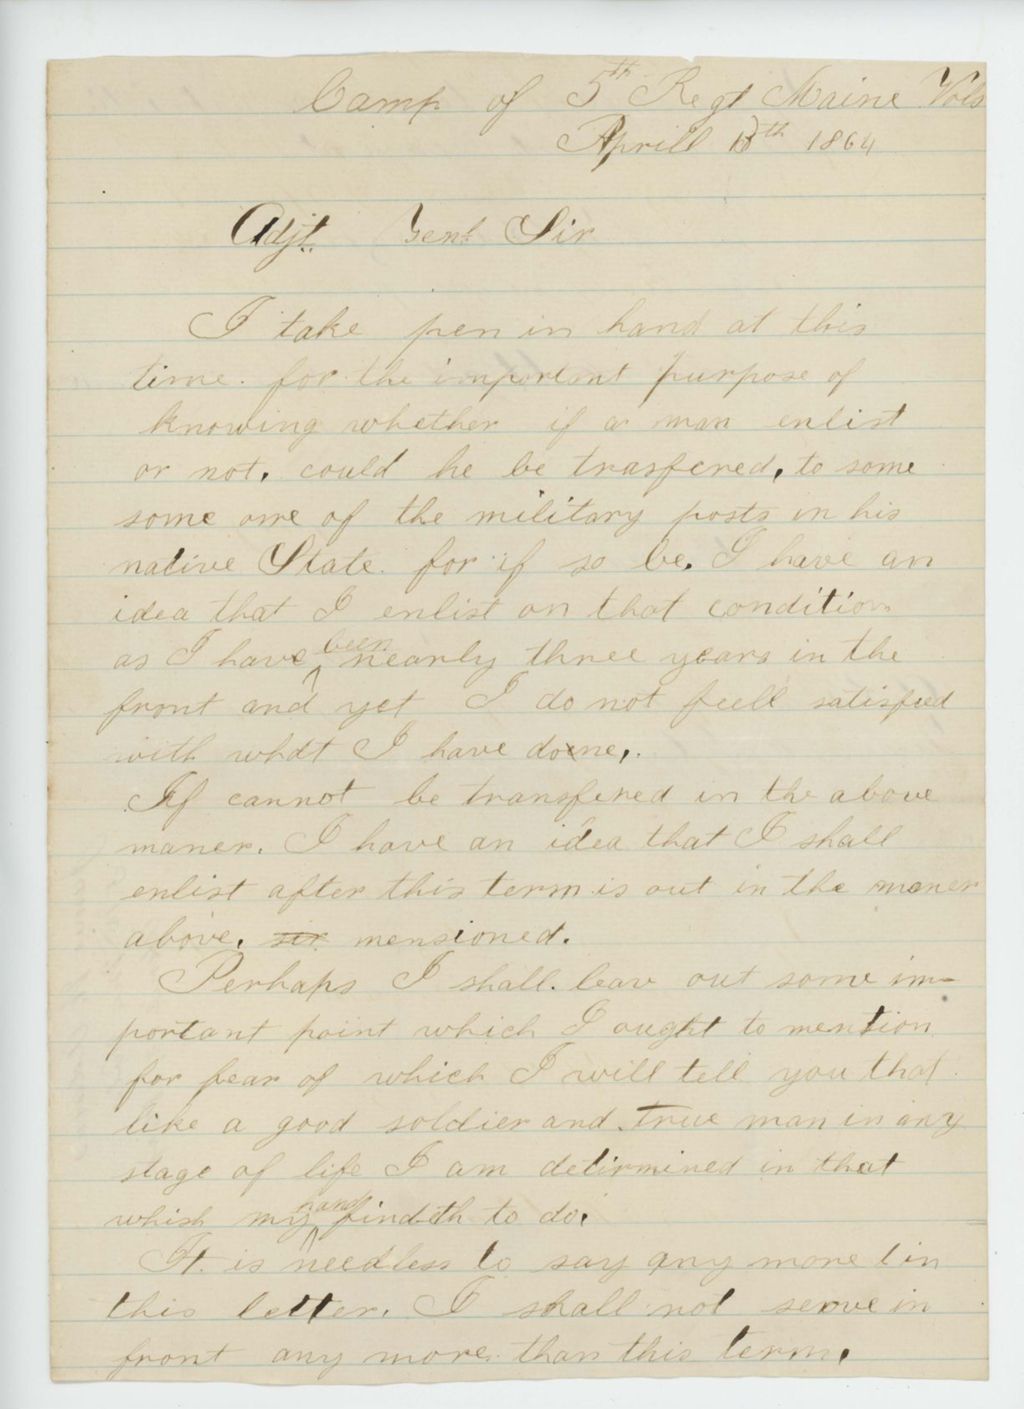 Camp of 5th Regt Maine Vols
Aprill 18th 1864
Adjt. Genl. Sir
I take pen in hand at this
time. for the important purpose of
knowing whether if a man enlist
or not, could he be trasfered, to some
some one of the military posts in his
native State. for if so be, I have an
idea that I enlist on that condition
as I have been nearly three years in the
front and yet I do not feell satisfied
with what I have done,.
If cannot be transfered in the above
maner. I have an idea that I shall
enlist after this term is out in the maner
above, sir mensioned.
Perhaps I shall leav out some im-
portant point which I ought to mention
for fear of which I will tell you that
like a good soldier and true man in any
stage of life I am detirmined in that
which my hand findeth to do.
It is needless to say any more in
this letter. I shall not serve in
front any more than this term.